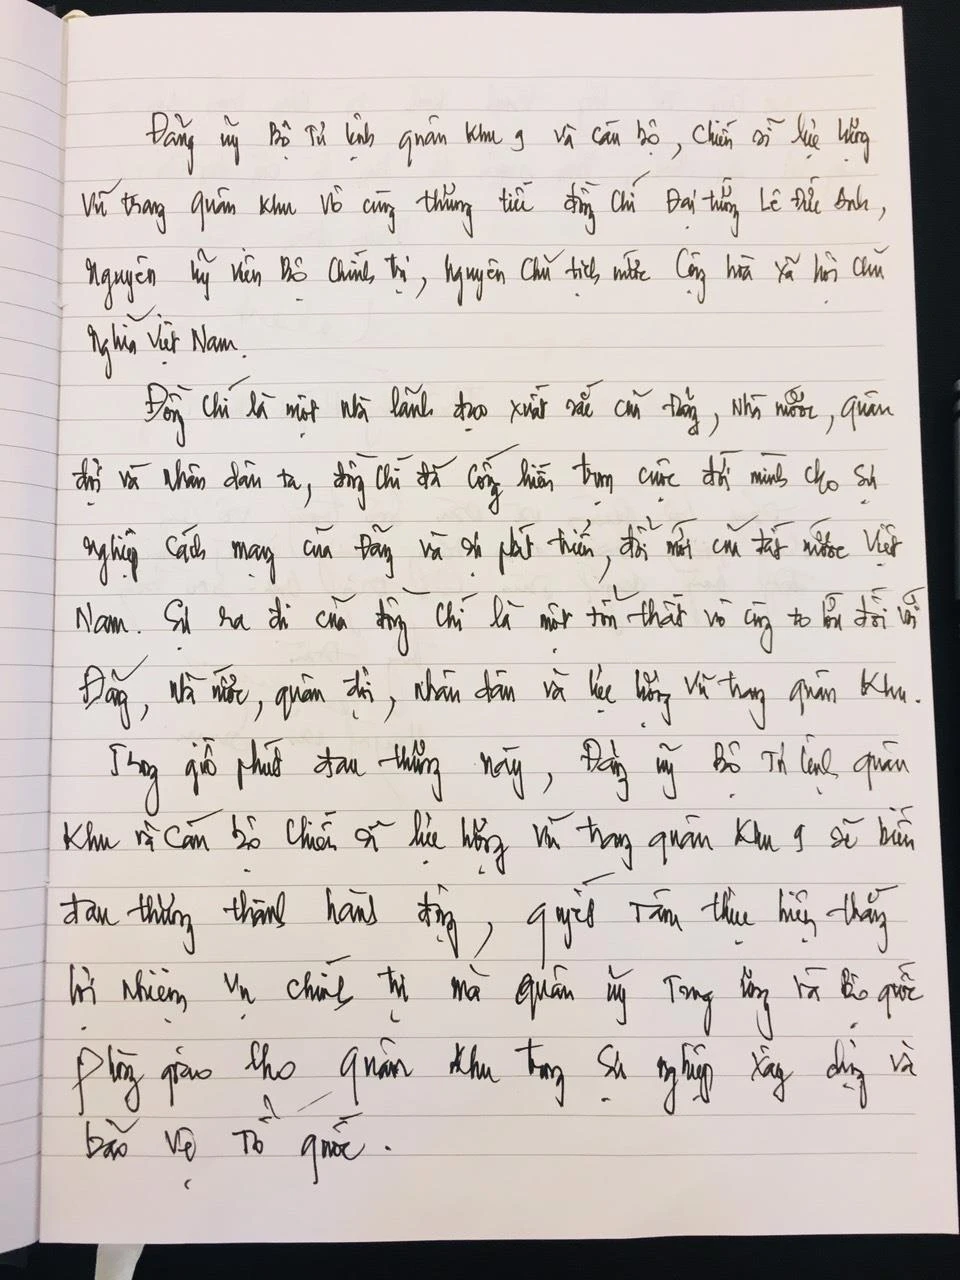 Đảng ủy Bộ Tư lệnh quân khu 9 và cán bộ, chiến sĩ lực lượng
vũ trang quân khu vô cùng thương tiếc đồng chí Đại tướng Lê Đức Anh,
nguyên ủy viên Bộ Chính trị, nguyên Chủ tịch nước Cộng hòa xã hội chủ
nghĩa Việt Nam.
Đồng chí là một nhà lãnh đạo xuất sắc của Đảng, Nhà nước, quân
đội và nhân dân ta, đồng chí đã cống hiến trọn cuộc đời mình cho sự
nghiệp cách mạng của Đảng và sự phát triển, đổi mới của đất nước Việt
Nam. Sự ra đi của đồng chí là một tổn thất vô cùng to lớn đối với
Đảng, nhà nước, quân đội, nhân dân và lực lượng vũ trang quân khu.
Trong giờ phút đau thương này, Đảng ủy Bộ Tư lệnh quân
khu và cán bộ chiến sĩ lực lượng vũ trang quân khu 9 sẽ biến
đau thương thành hành động, quyết tâm thực hiện thắng
lợi nhiệm vụ chính trị mà quân ủy Trung ương và Bộ quốc
phòng giao cho quân khu trong sự nghiệp xây dựng và
bảo vệ Tổ quốc.